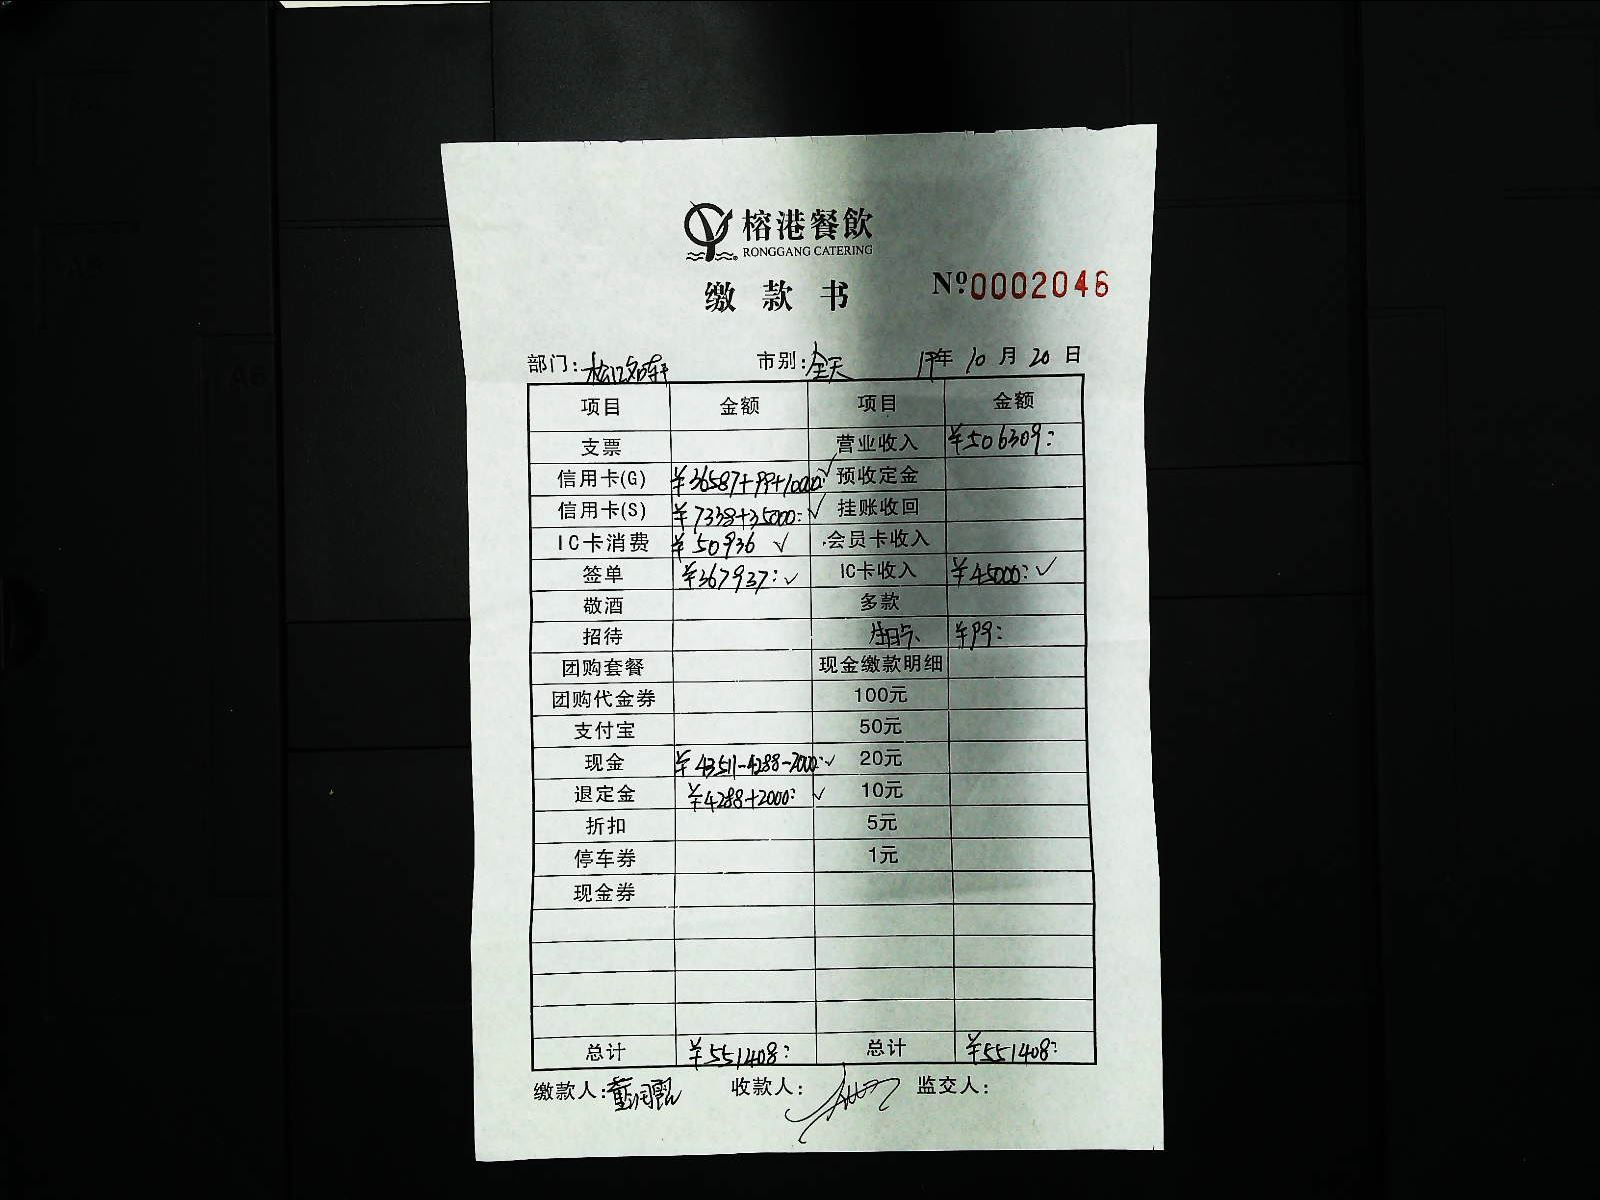 榕港餐飲
RONGGANG CATERING
缴款书 Nº0002046
部门: 市别:全天 17年10月20日
项目 金额 项目 金额
支票 营业收入 ¥506309:
信用卡(G) ¥36587+99+10000: √ 预收定金
信用卡(S) ¥7338+35000: √ 挂账收回
IC卡消费 ¥50936 √ 会员卡收入
签单 ¥367937: √ IC卡收入 ¥45000: √
敬酒 多款
招待 ¥99:
团购套餐 现金缴款明细
团购代金券 100元
支付宝 50元
现金 ¥43511-4288-2000: √ 20元
退定金 ¥4288+2000: √ 10元
折扣 5元
停车券 1元
现金券
总计 ¥551408: 总计 ¥551408:
缴款人: 收款人: 监交人: